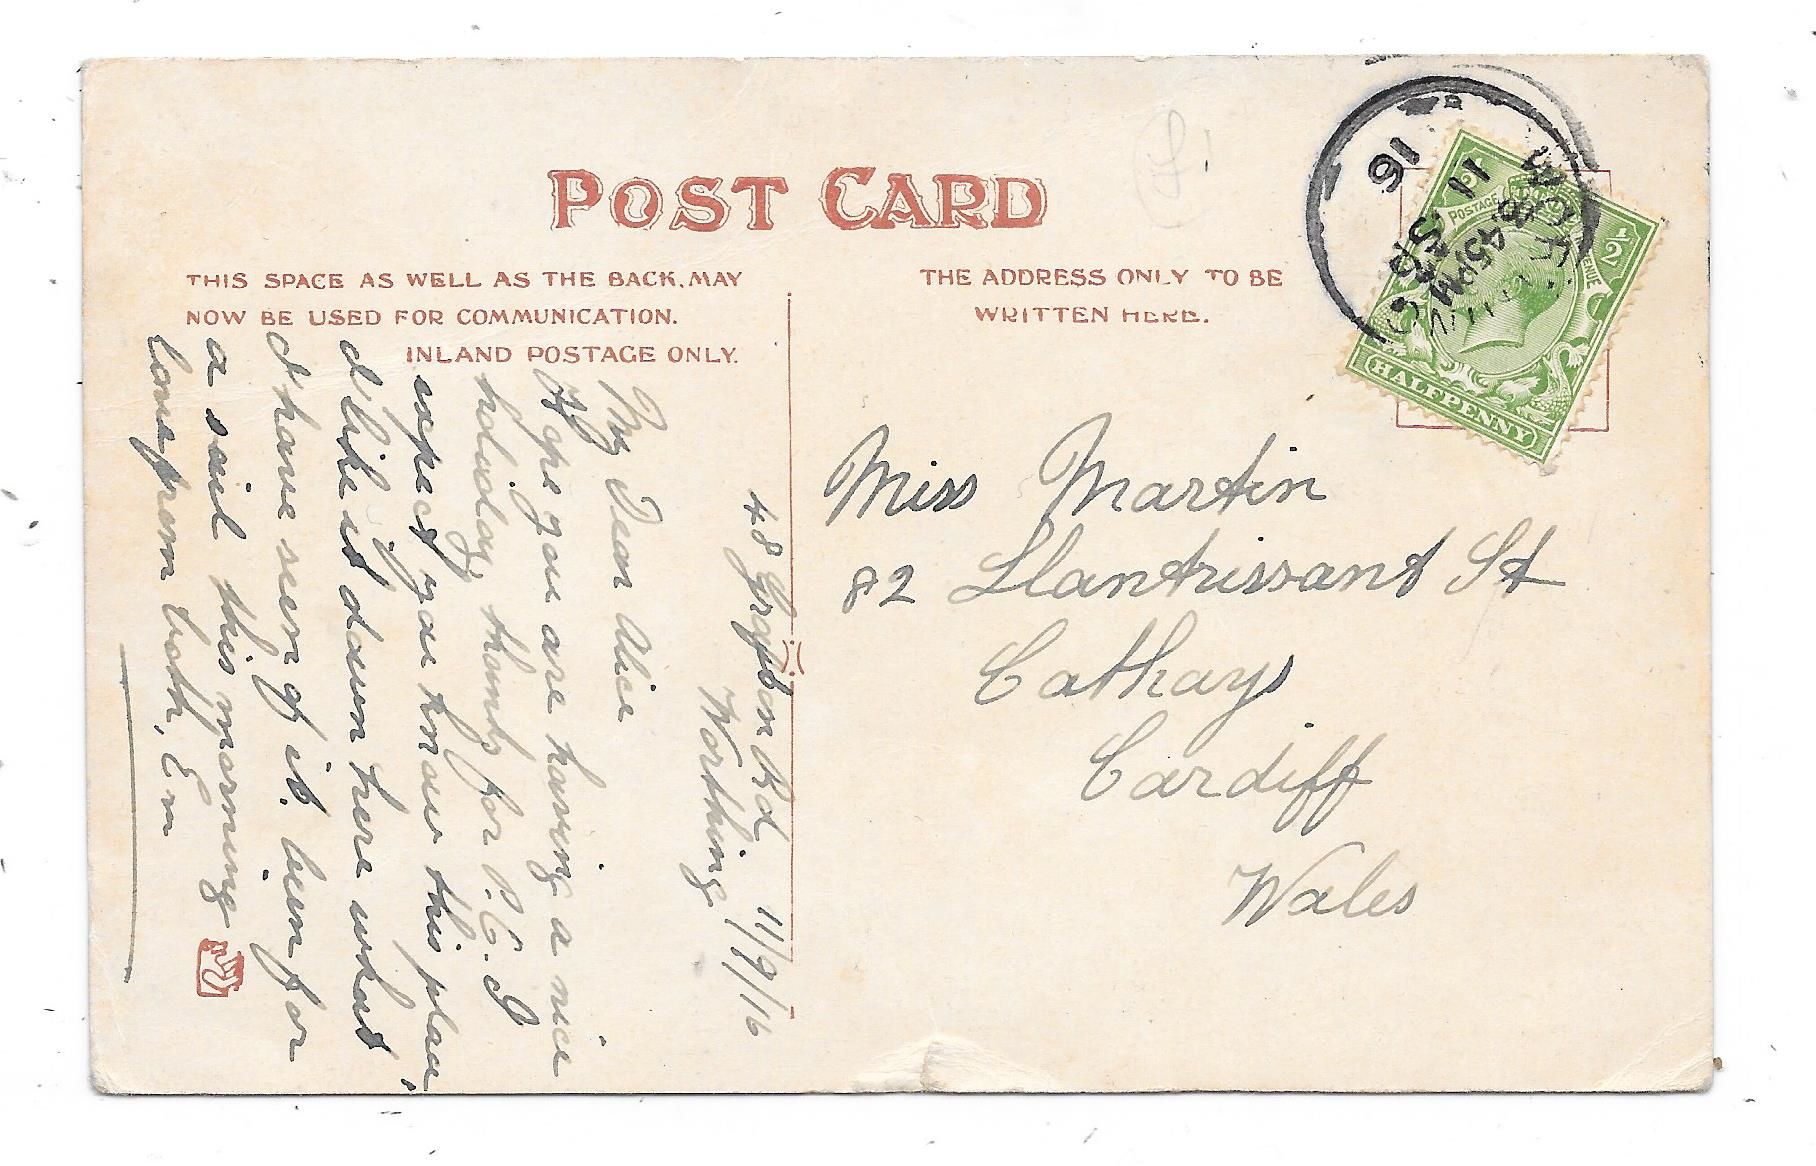 POST CARD
THIS SPACE AS WELL AS THE BACK, MAY
NOW BE USED FOR COMMUNICATION.
INLAND POSTAGE ONLY.
THE ADDRESS ONLY TO BE
WRITTEN HERE.
WORTHING
8.45PM
11 SP
16
POSTAGE
REVENUE
1/2
1/2
HALFPENNY
Miss Martin
82 Llantrissant St
Cathays
Cardiff
Wales
48 Grafton Rd 11/9/16
Worthing
My Dear Alice
Hope you are having a nice
holiday, thanks for P.C. I
expect you know this place,
I like it down here what
I have seen of it. been for
a sail this morning
love from both, Em